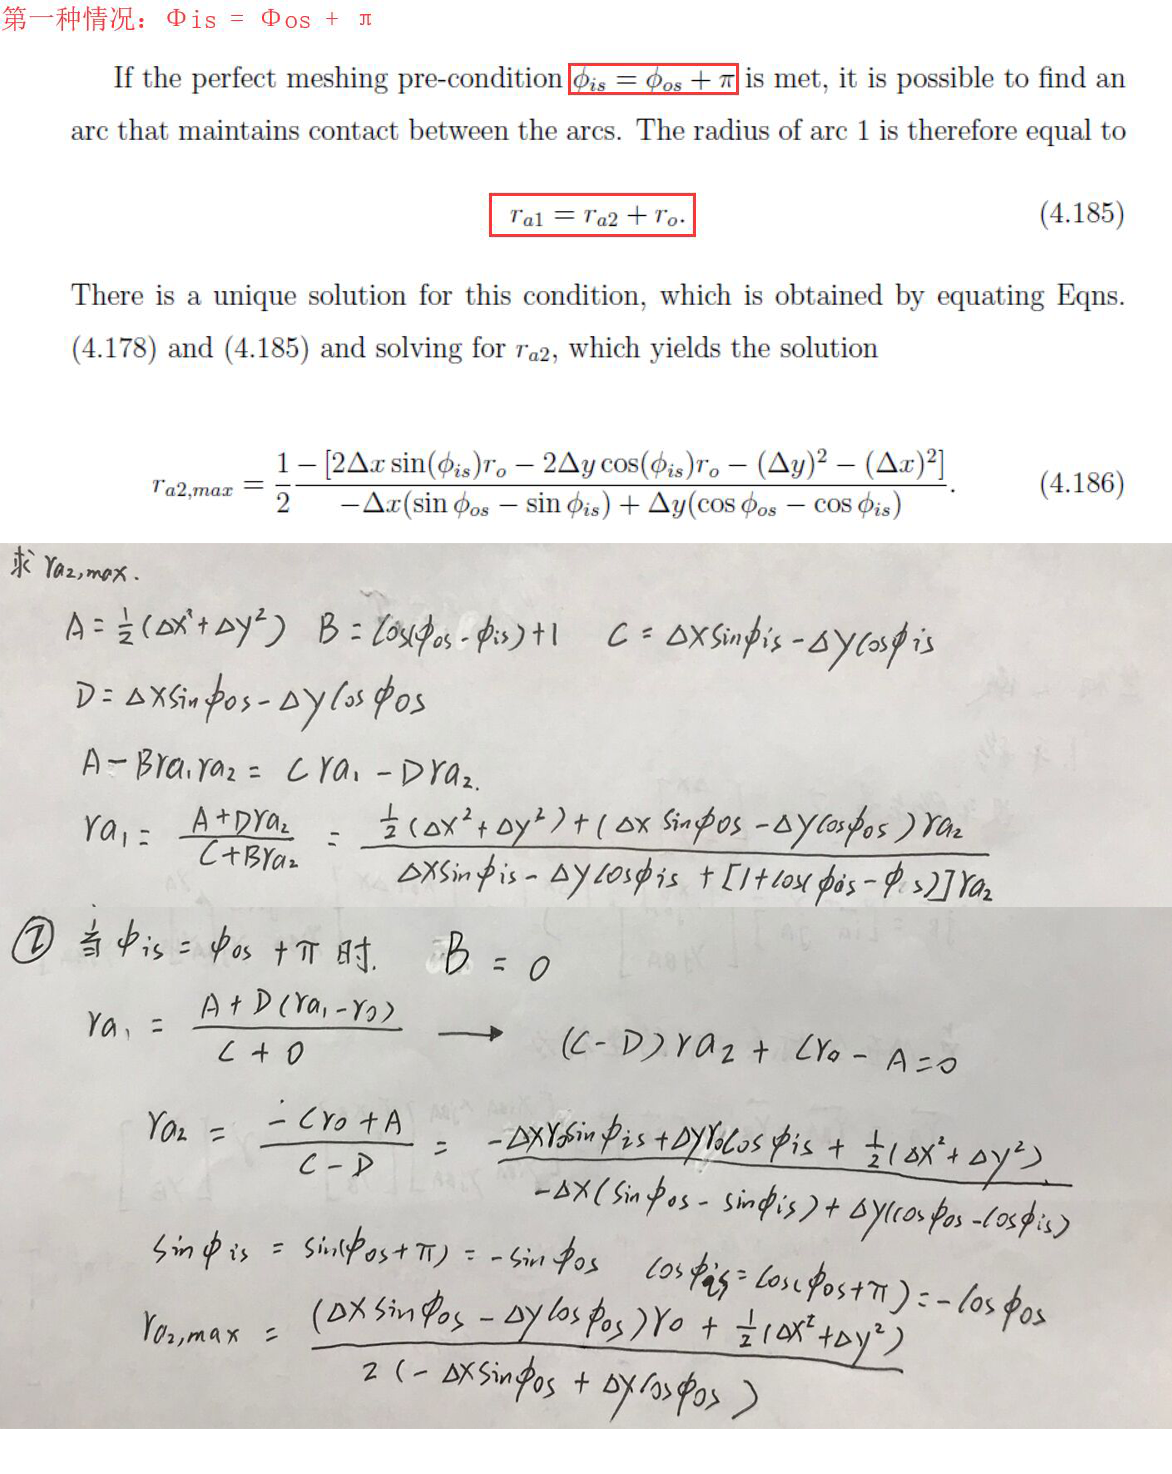 第一种情况：Φis = Φos + π
If the perfect meshing pre-condition ϕis = ϕos + π is met, it is possible to find an
arc that maintains contact between the arcs. The radius of arc 1 is therefore equal to
ra1 = ra2 + ro. (4.185)
There is a unique solution for this condition, which is obtained by equating Eqns.
(4.178) and (4.185) and solving for ra2, which yields the solution
ra2,max = 1/2 −[2Δx sin(ϕis)ro − 2Δy cos(ϕis)ro − (Δy)² − (Δx)²] / −Δx(sin ϕos − sin ϕis) + Δy(cos ϕos − cos ϕis). (4.186)
求 ra2,max.
A = ½(Δx²+Δy²) B = cos(ϕos - ϕis)+1 C = Δxsinϕis - Δycosϕis
D = Δxsinϕos - Δycosϕos
A - Bra1ra2 = Cra1 - Dra2.
ra1 = (A+Dra2)/(C+Bra2) = (½(Δx²+Δy²)+(Δx sinϕos - Δycosϕos)ra2)/(Δxsinϕis - Δycosϕis + [1+cos(ϕos-ϕis)]ra2)
② 当 ϕis = ϕos + π 时. B = 0
ra1 = (A+D(ra1-r0))/(C+0) → (C-D)ra2 + Cr0 - A=0
ra2 = (-Cr0+A)/(C-D) = (-Δxr0sinϕis+Δyr0cosϕis + ½(Δx²+Δy²))/(-Δx(sinϕos - sinϕis)+Δy(cosϕos-cosϕis))
sinϕis = sin(ϕos+π) = -sinϕos cosϕis = cos(ϕos+π) = -cosϕos
ra2,max = ((Δxsinϕos - Δycosϕos)r0 + ½(Δx²+Δy²))/(2(-Δxsinϕos + Δycosϕos))